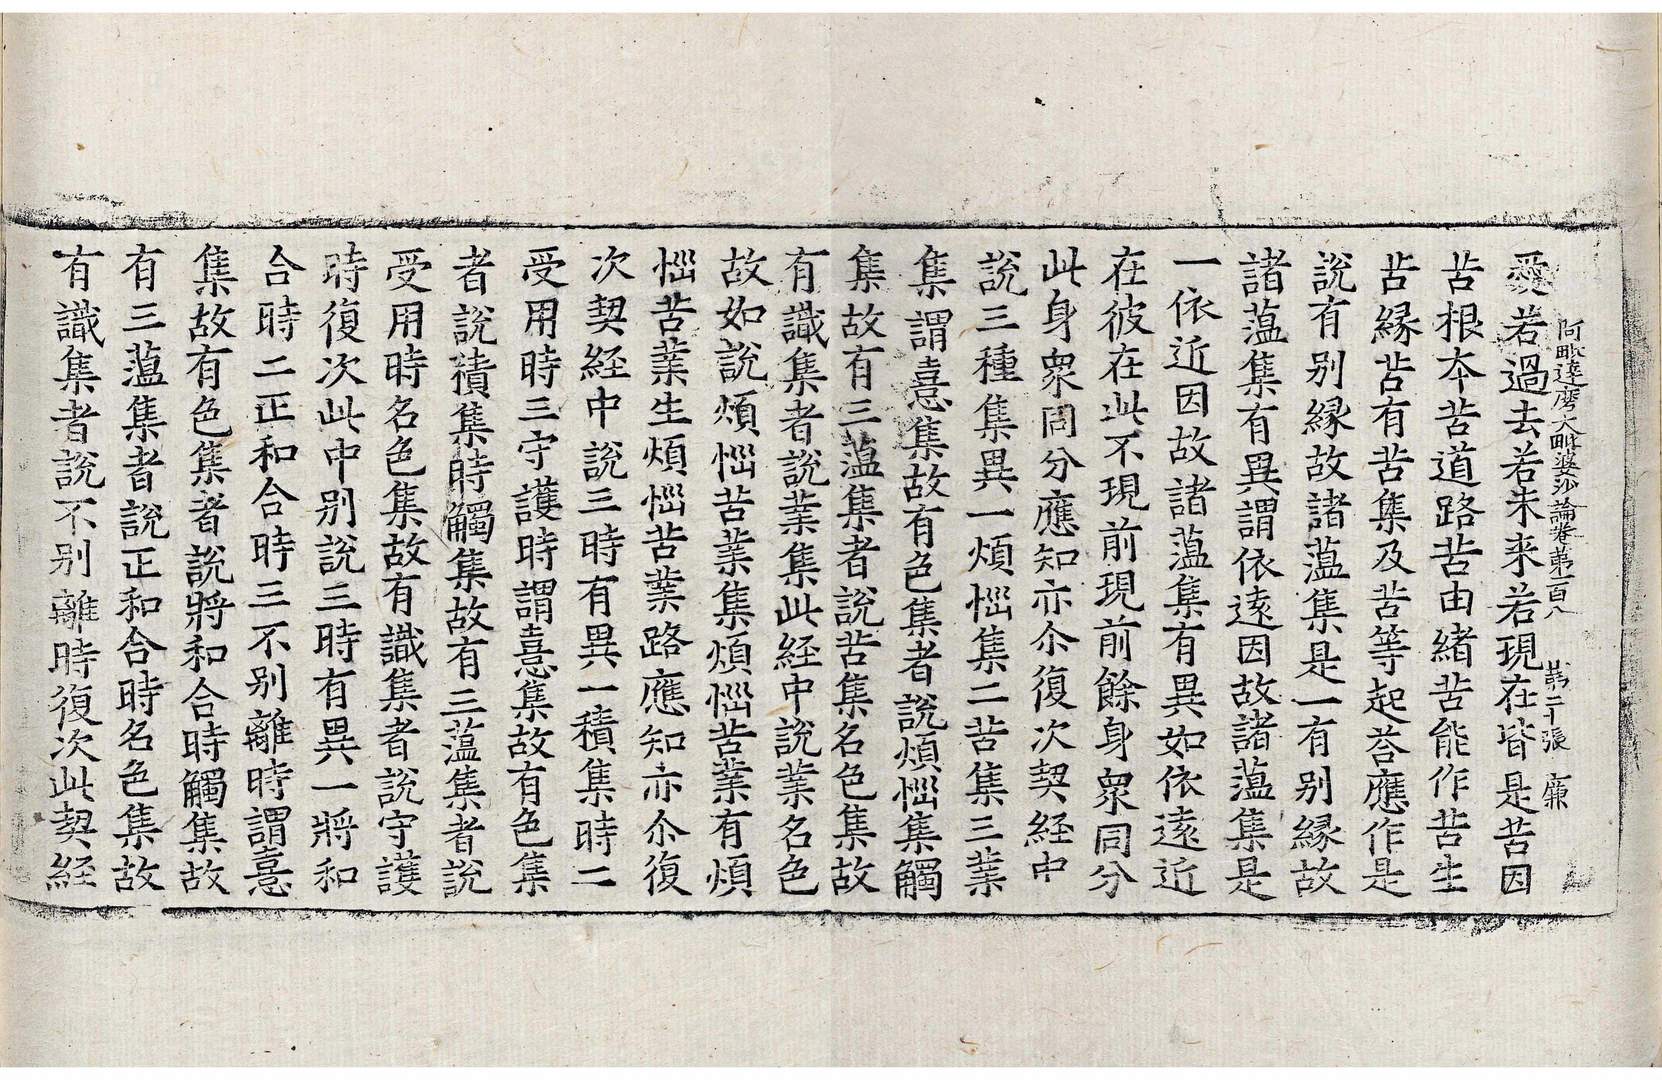 阿毗達磨大毗婆沙論卷第一百八　第二十張　廉
愛若過去若未来若現在皆是苦因
苦根夲苦道路苦由緒苦能作苦生
苦縁苦有苦集及苦等起荅應作是
說有别縁故諸薀集是一有别縁故
諸薀集有異謂依遠因故諸薀集是
一依近因故諸薀集有異如依遠近
在彼在此不現前現前餘身衆同分
此身衆同分應知亦尒復次契経中
說三種集異一煩惱集二苦集三業
集謂憙集故有色集者說煩惱集觸
集故有三薀集者說苦集名色集故
有識集者說業集此経中說業名色
故如說煩惱苦業集煩惱苦業有煩
惱苦業生煩惱苦業路應知亦尒復
次契経中說三時有異一積集時二
受用時三守護時謂憙集故有色集
者說積集時觸集故有三薀集者說
受用時名色集故有識集者說守護
時復次此中别說三時有異一將和
合時二正和合時三不别離時謂憙
集故有色集者說將和合時觸集故
有三薀集者說正和合時名色集故
有識集者說不别離時復次此契経